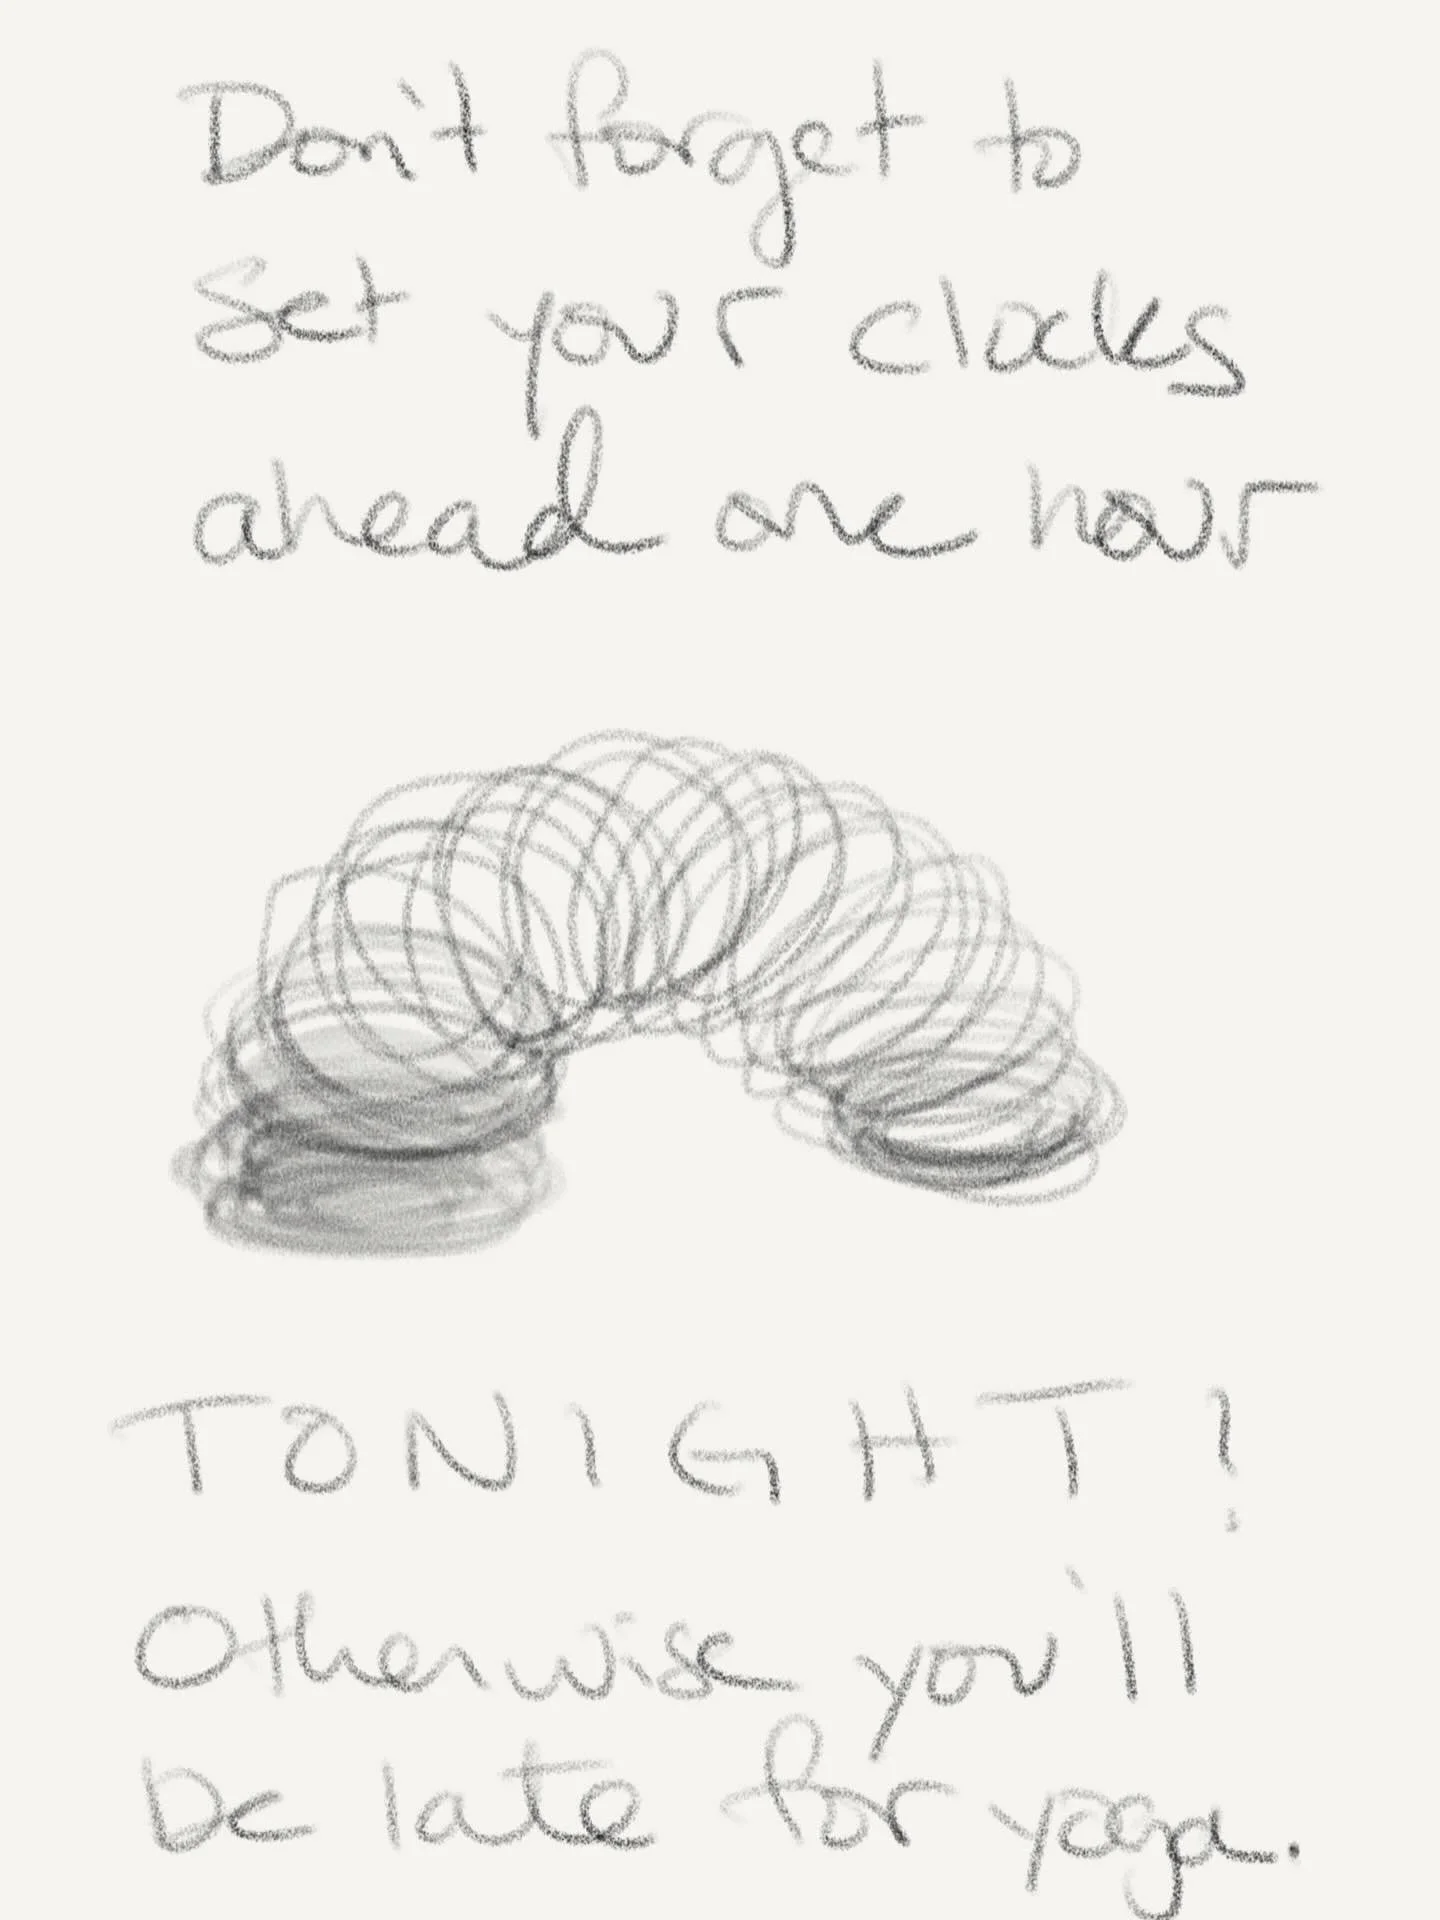 Don't forget to
Set your clocks
ahead one hour
TONIGHT!
Otherwise you'll
be late for yoga.